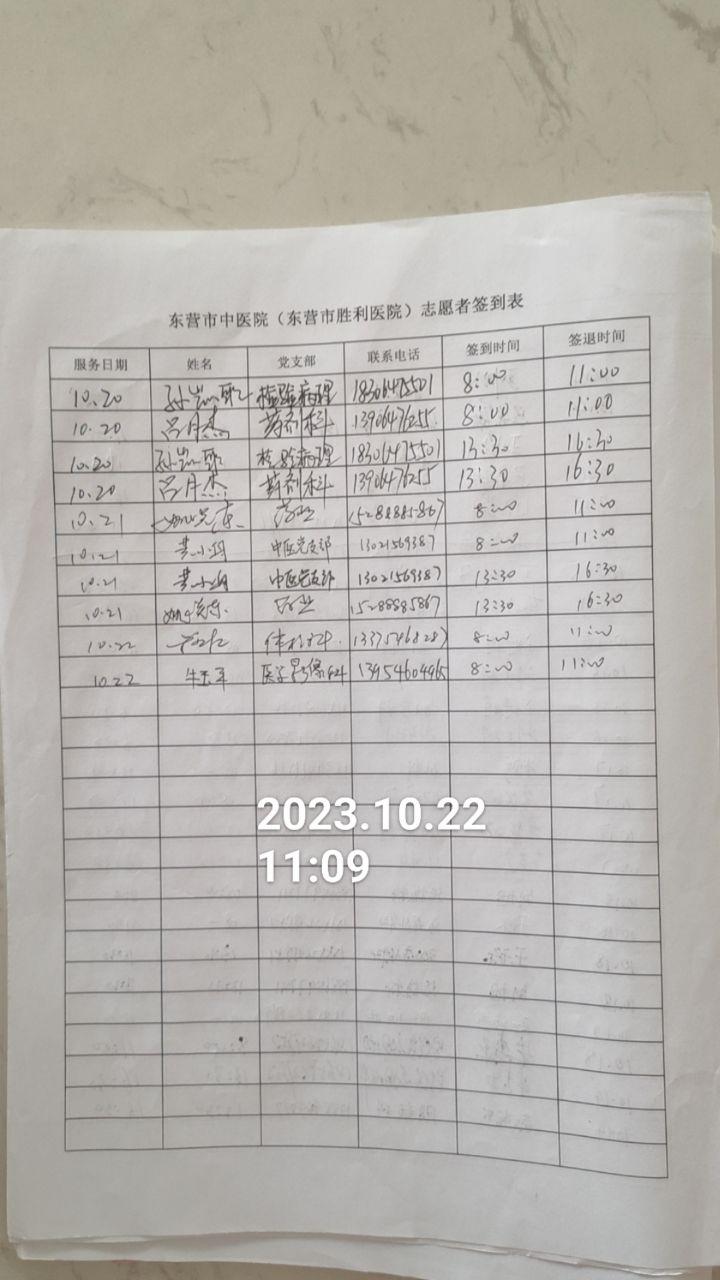 东营市中医院（东营市胜利医院）志愿者签到表
服务日期 姓名 党支部 联系电话 签到时间 签退时间
10.20 检验病理 18306475501 8:00 11:00
10.20 吕月杰 药剂科 13906476255 8:00 11:00
10.20 检验病理 18306475501 13:30 16:30
10.20 吕月杰 药剂科 13906476255 13:30 16:30
10.21 15288885867 8:00 11:00
10.21 中医党支部 13021569387 8:00 11:00
10.21 中医党支部 13021569387 13:30 16:30
10.21 15288885867 13:30 16:30
10.22 8:00 11:00
10.22 医学影像科 13954604965 8:00 11:00
2023.10.22
11:09